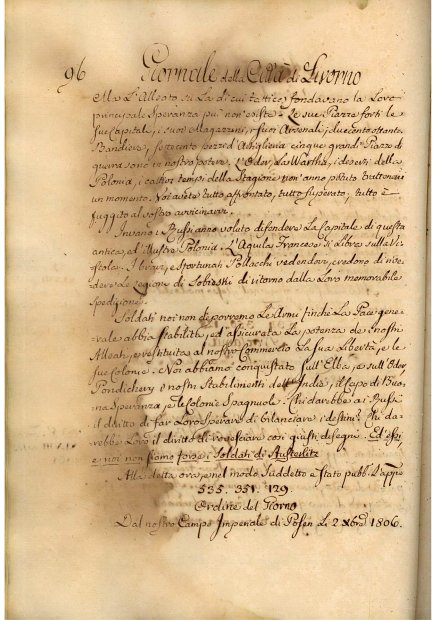 96 Giornale della Città di Livorno
Ma L'Alleato su La di cui tattica fondavano la Loro
principale Speranza più non esiste. Le sue Piazze forti le
sue Capitali, i suoi Magazzeni, i suoi Arsenali, duecento ottanta
Bandiere, settecento pezzi d'Artiglieria cinque grandi Piazze di
guerra sono in nostro potere. L'Oder, La Wartha, i deserti della
Polonia, i cattivi tempi della Stagione non anno potuto trattenervi
un momento. Voi avete tutto affrontato, tutto superato, tutto è
fuggito al vostro avvicinarvi.
Invano i Russi anno voluto difendere La Capitale di questa
antica, ed illustre Polonia. L'Aquila Francese si Libra sulla Vi-
stola. I bravi, e sfortunati Pollacchi vedendovi, credono di rive-
dere Le Legioni di Sobieski di ritorno dalla Loro memorabile
Spedizione.
Soldati noi non deporremo Le Armi finchè La Pace gene-
rale abbia stabilità, ed assicurata La potenza de nostri
Alleati, e restituita al nostro Commercio La sua Libertà, e le
sue Colonie. Noi abbiamo conquistato sull'Elba, e sull'Oder
Pondichery i nostri Stabilimenti dell'Indie, il Capo di Buo-
na Speranza, e le Colonie Spagnuole. Chi darebbe ai Russi
il dritto di far Loro sperare di bilanciare i destini? Chi da-
rebbe Loro il diritto di rovesciare così giusti disegni. Ed essi
e noi non siamo forse i Soldati di Austerlitz
Alla detta ora, e nel modo Suddetto è Stato pubb.
535. 351. 129.
Ordine del Giorno
Dal nostro Campo Imperiale di Posen Li 2 Xbre 1806.